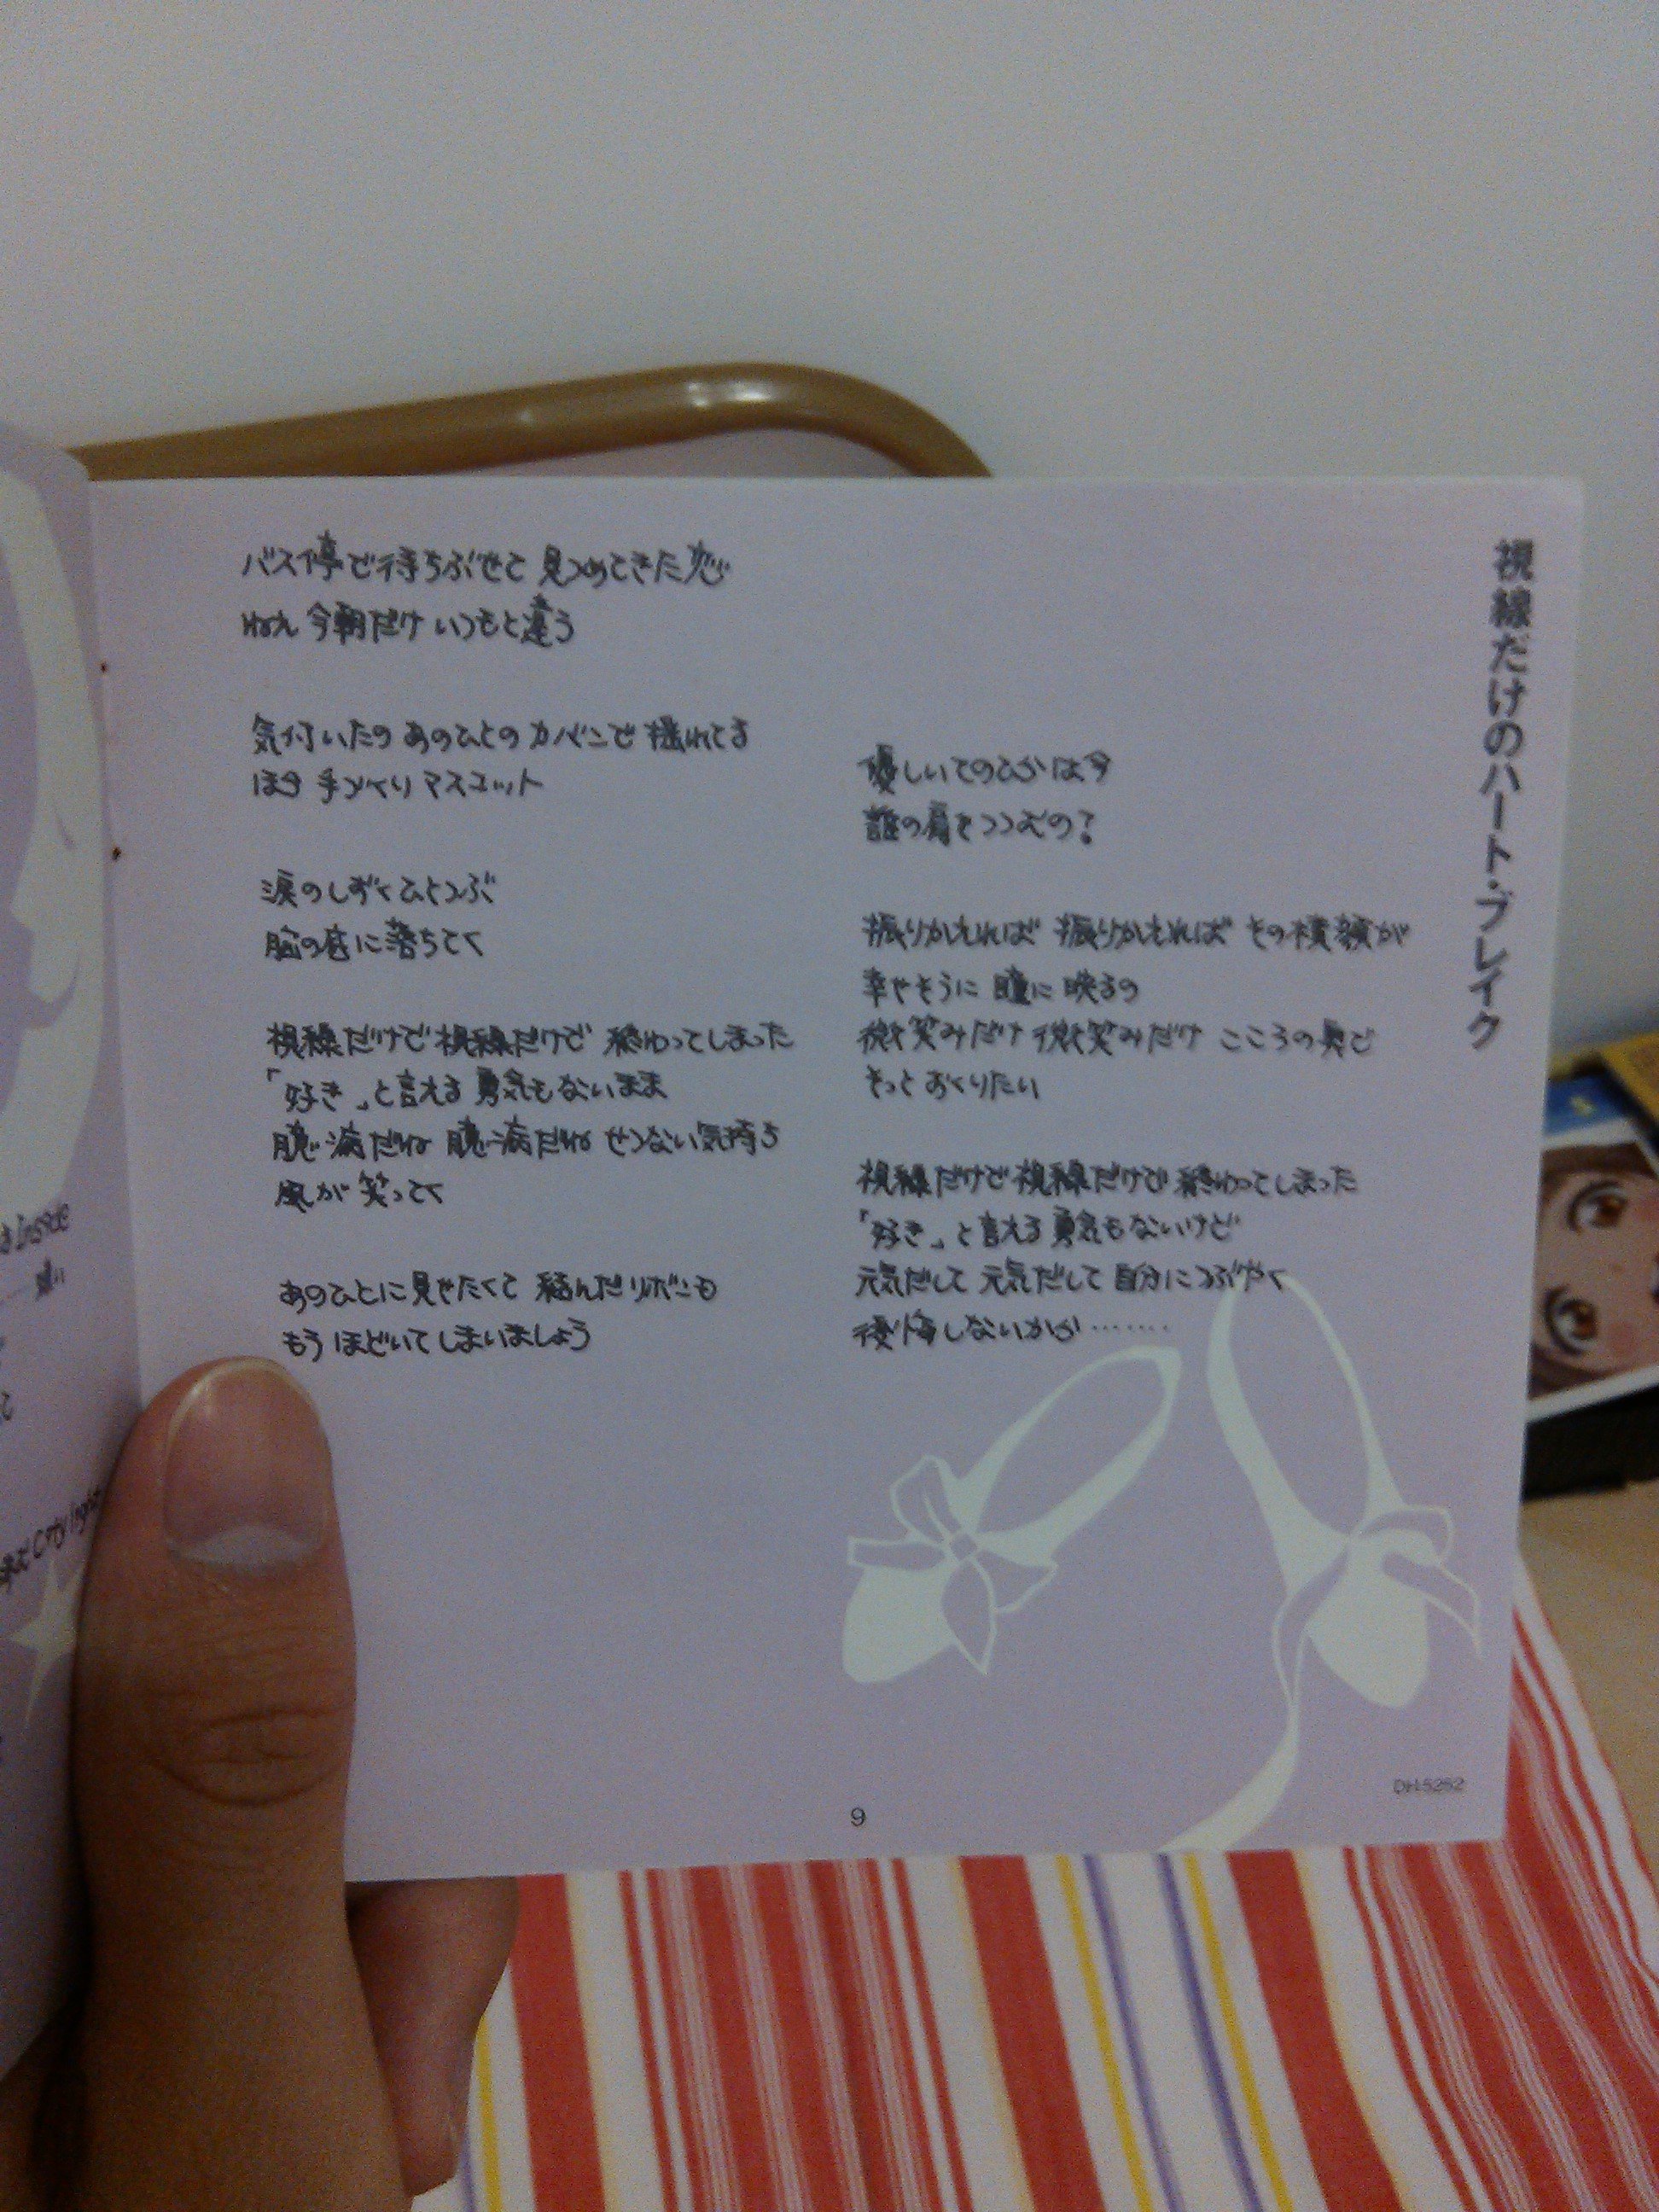 視線だけのハート・ブレイク
バス停で待ちぶせて 見つめてきた恋
ねえ 今朝だけ いつもと違う
気付いたの あのひとの カバンで 揺れてる
ほら 手づくり マスコット
涙のしずく ひとつぶ
胸の底に 落ちてく
視線だけで 視線だけで 終わってしまった
「好き」と言える 勇気もないまま
臆病だね 臆病だね せつない気持ち
風が 笑ってく
あのひとに 見せたくて 結んだリボンも
もう ほどいて しまいましょう
優しい てのひらは今
誰の肩を つつむの?
振りかえれば 振りかえれば その横顔が
幸せそうに 瞳に 映るの
微笑みだけ 微笑みだけ こころの奥で
そっと おくりたい
視線だけで 視線だけで 終わってしまった
「好き」と言える 勇気もないけど
元気だして 元気だして 自分に つぶやく
後悔しないから‥‥‥
9
DH-5252